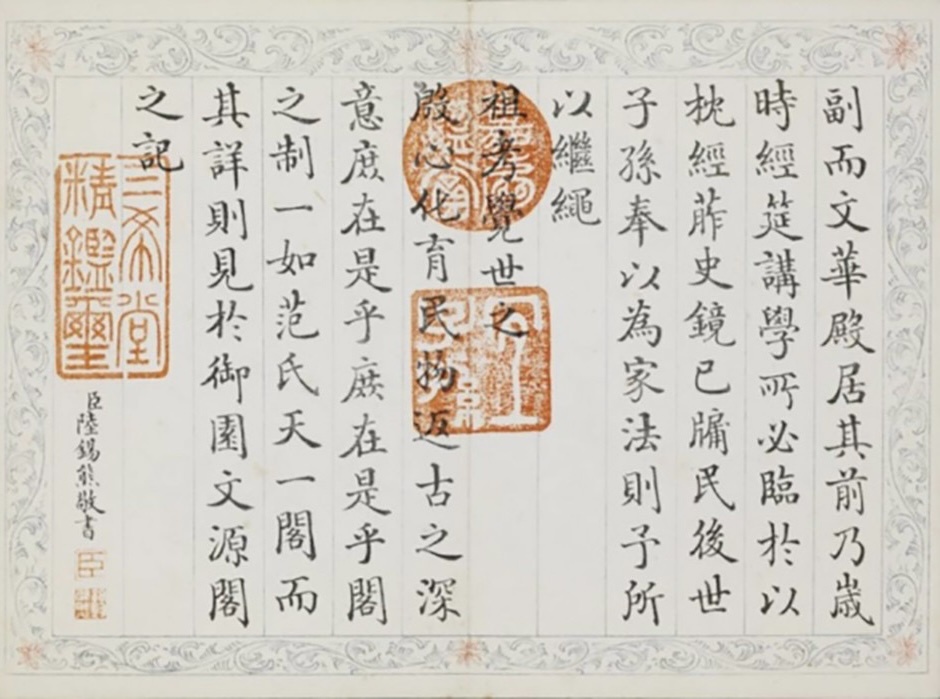 副而文華殿居其前乃歲
時經筵講學所必臨於以
枕經葄史鏡已牖民後世
子孫奉以為家法則予所
以繼繩
祖考覺世之
殷心化育民物返古之深
意庶在是乎庶在是乎閣
之制一如范氏天一閣而
其詳則見於御園文源閣
之記
臣陸錫熊敬書
三希堂
精鑑璽
宜子孫
臣